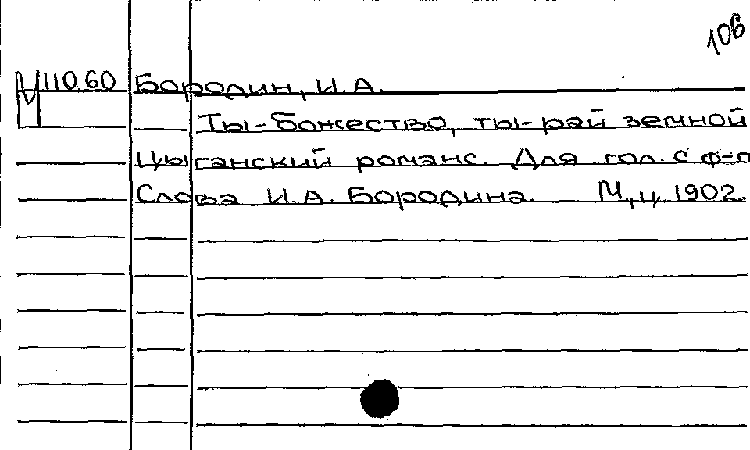 106
М 110.60 Бородин, И.А.
Ты-божество, ты-рай земной
Цыганский романс. Для гол. с ф-п
Слова И.А. Бородина. М., ц. 1902.